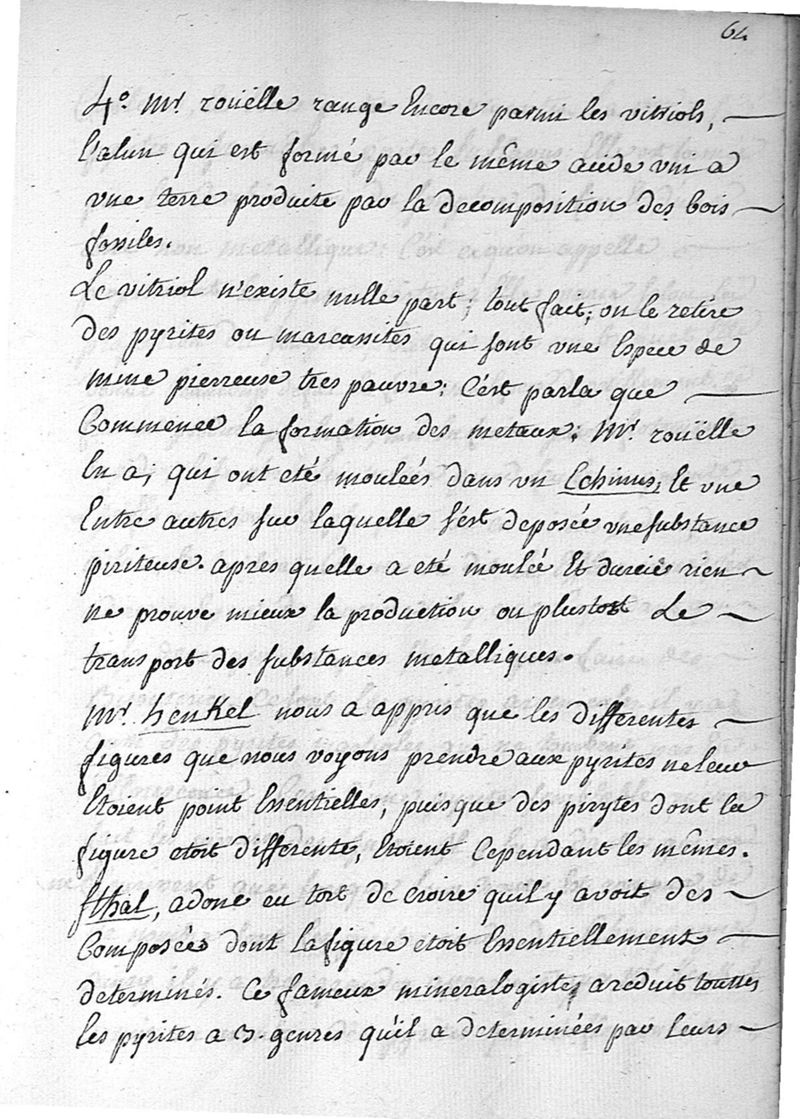 64
4.° Mr. rouëlle range Encore parmi les vitriols,
l'alun qui est formé par le même acide uni a
une terre produite par la decomposition des bois
fossiles.
Le vitriol n'existe nulle part; tout fait; on le retire
des pyrites ou marcassites qui sont une Espece de
mine pierreuse tres pauvre: C'est parla que
Commence la formation des metaux: Mr. rouëlle
En a; qui ont eté moulées dans un Echinus, Et une
Entre autres sur laquelle s'est deposée une substance
piriteuse. apres quelle a eté moulée Et durcie rien
ne prouve mieux la production ou plustost Le
transport des substances metalliques.
Mr. henKel nous a appris que les differentes
figures que nous voyons prendre aux pyrites ne leur
Etoient point Essentielles, puisque des pirytes dont la
figure etoit differente, Etoient Cependant les mêmes.
sthal, a donc eu tort de croire qu'il y avoit des
Composées dont la figure etoit Essentiellement
determinés. Ce fameux mineralogiste a reduit touttes
les pyrites a 3. genres qu'il a determinées par leurs